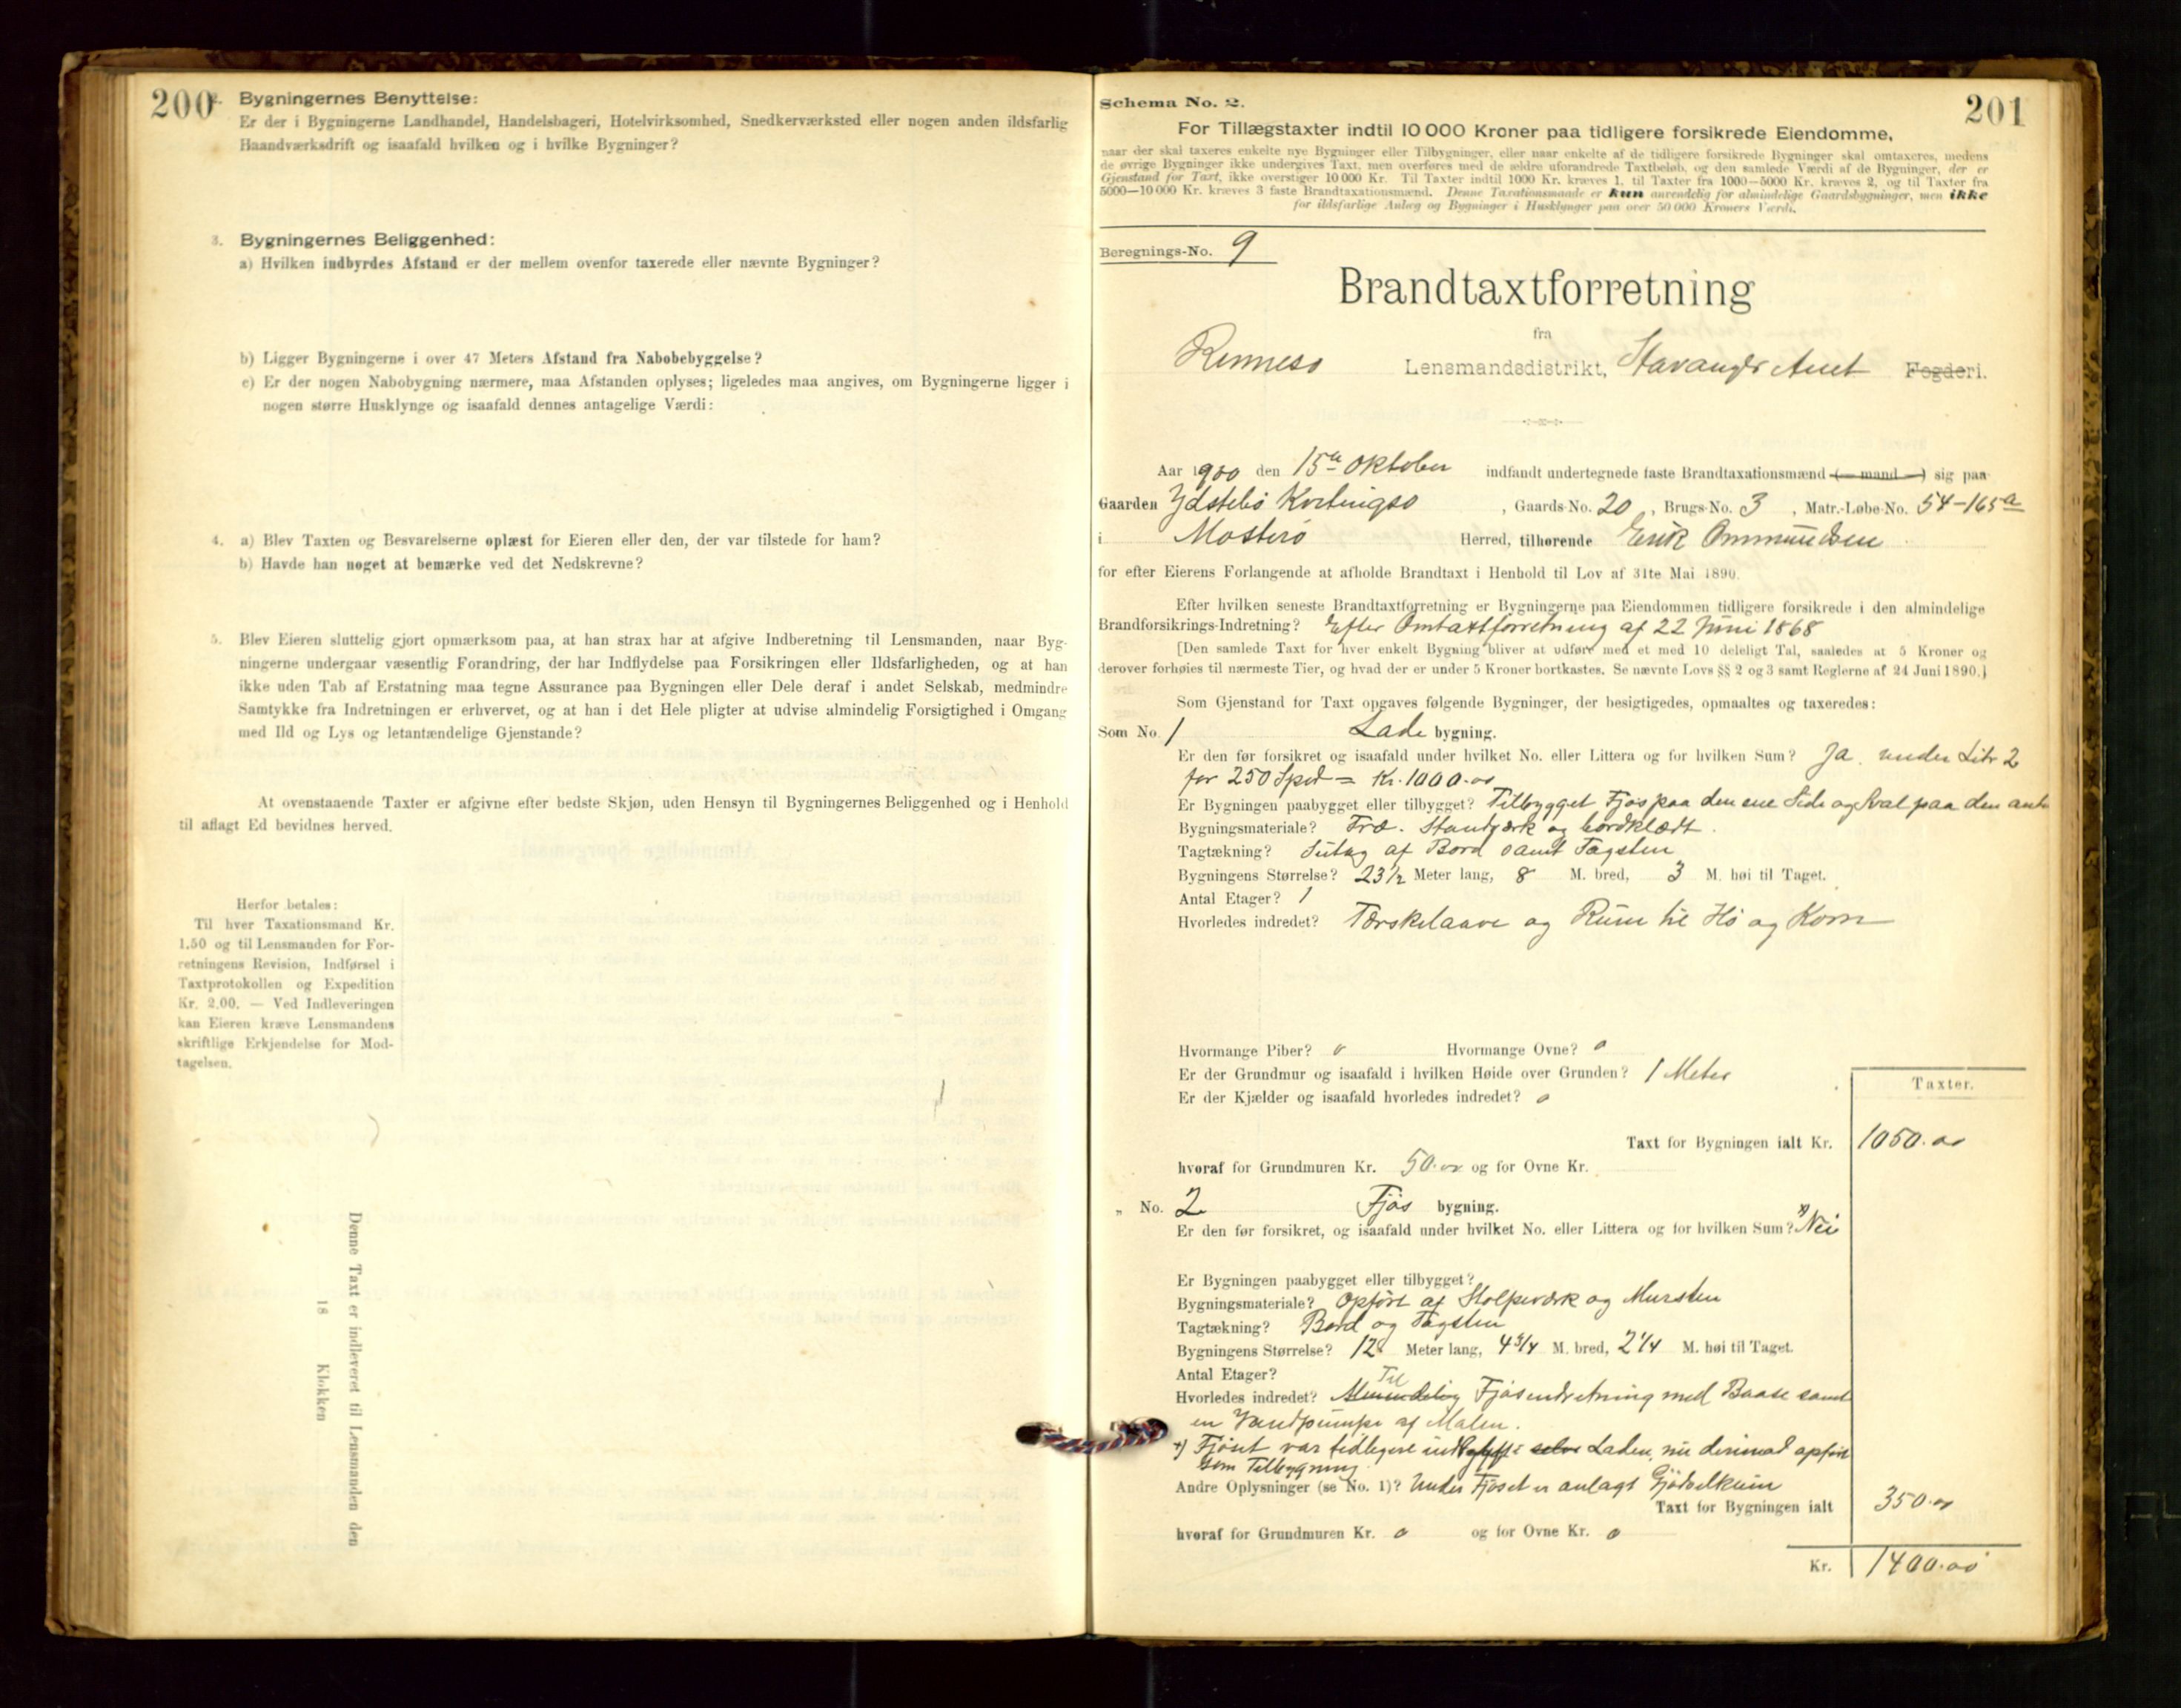 200
2. Bygningernes Benyttelse:
Er der i Bygningerne Landhandel, Handelsbageri, Hotelvirksomhed, Snedkerværksted eller nogen anden ildsfarlig
Haandværksdrift og isaafald hvilken og i hvilke Bygninger?
3. Bygningernes Beliggenhed:
a) Hvilken indbyrdes Afstand er der mellem ovenfor taxerede eller nævnte Bygninger?
b) Ligger Bygningerne i over 47 Meters Afstand fra Nabobebyggelse?
c) Er der nogen Nabobygning nærmere, maa Afstanden oplyses; ligeledes maa angives, om Bygningerne ligger i
nogen større Husklynge og isaafald dennes antagelige Værdi:
4. a) Blev Taxten og Besvarelserne oplæst for Eieren eller den, der var tilstede for ham?
b) Havde han noget at bemærke ved det Nedskrevne?
5. Blev Eieren sluttelig gjort opmærksom paa, at han strax har at afgive Indberetning til Lensmanden, naar Byg-
ningerne undergaar væsentlig Forandring, der har Indflydelse paa Forsikringen eller Ildsfarligheden, og at han
ikke uden Tab af Erstatning maa tegne Assurance paa Bygningen eller Dele deraf i andet Selskab, medmindre
Samtykke fra Indretningen er erhvervet, og at han i det Hele pligter at udvise almindelig Forsigtighed i Omgang
med Ild og Lys og letantændelige Gjenstande?
At ovenstaaende Taxter er afgivne efter bedste Skjøn, uden Hensyn til Bygningernes Beliggenhed og i Henhold
til aflagt Ed bevidnes herved.
Herfor betales:
Til hver Taxationsmand Kr.
1,50 og til Lensmanden for For-
retningens Revision, Indførsel i
Taxtprotokollen og Expedition
Kr. 2,00. — Ved Indleveringen
kan Eieren kræve Lensmandens
skriftlige Erkjendelse for Mod-
tagelsen.
Denne Taxt er indleveret til Lensmanden den
18 Klokken
Schema No. 2. 201
For Tillægstaxter indtil 10 000 Kroner paa tidligere forsikrede Eiendomme,
naar der skal taxeres enkelte nye Bygninger eller Tilbygninger, eller naar enkelte af de tidligere forsikrede Bygninger skal omtaxeres, medens
de øvrige Bygninger ikke undergives Taxt, men overføres med de ældre uforandrede Taxtbeløb, og den samlede Værdi af de Bygninger, der er
Gjenstand for Taxt, ikke overstiger 10 000 Kr. Til Taxter indtil 1000 Kr. kræves 1, til Taxter fra 1000—5000 Kr. kræves 2, og til Taxter fra
5000—10 000 Kr. kræves 3 faste Brandtaxationsmænd. Denne Taxationsmaade er kun anvendelig for almindelige Gaardsbygninger, men ikke
for ildsfarlige Anlæg og Bygninger i Husklynger paa over 50 000 Kroners Værdi.
Beregnings-No. 9
Brandtaxtforretning
fra
Rennesø Lensmandsdistrikt, Stavanger Amt Fogderi.
Aar 1900 den 15de Oktober indfandt undertegnede faste Brandtaxationsmænd (— mand —) sig paa
Gaarden Ydstebø , Gaards-No. 20 , Brugs-No. 3 , Matr.-Løbe-No. 54-165a
i Mosterø Herred, tilhørende Erik Ommundsen
for efter Eierens Forlangende at afholde Brandtaxt i Henhold til Lov af 31te Mai 1890.
Efter hvilken seneste Brandtaxtforretning er Bygningerne paa Eiendommen tidligere forsikrede i den almindelige
Brandforsikrings-Indretning? Efter Omtaxtforretning af 22 Juni 1868
[Den samlede Taxt for hver enkelt Bygning bliver at udføre med et med 10 deleligt Tal, saaledes at 5 Kroner og
derover forhøies til nærmeste Tier, og hvad der er under 5 Kroner bortkastes. Se nævnte Lovs §§ 2 og 3 samt Reglerne af 24 Juni 1890.]
Som Gjenstand for Taxt opgaves følgende Bygninger, der besigtigedes, opmaaltes og taxeredes:
Som No. 1 Lade bygning.
Er den før forsikret og isaafald under hvilket No. eller Littera og for hvilken Sum? Ja. under Litr 2
for 250 Spd = Kr. 1000.00
Er Bygningen paabygget eller tilbygget? Tilbygget Fjøs paa den ene Side og Sval paa den
Bygningsmateriale? Træ. Standværk og bordklædt.
Tagtækning? Sutag af Bord samt Tagsten
Bygningens Størrelse? 23½ Meter lang, 8 M. bred, 3 M. høi til Taget.
Antal Etager? 1
Hvorledes indredet? Tærskelaave og Rum til Hø og Korn
Hvormange Piber? 0 Hvormange Ovne? 0
Er der Grundmur og isaafald i hvilken Høide over Grunden? 1 Meter
Er der Kjælder og isaafald hvorledes indredet? 0
Taxter.
Taxt for Bygningen ialt Kr. 1050.00
hvoraf for Grundmuren Kr. 50.00 og for Ovne Kr.
„ No. 2 Fjøs bygning.
Er den før forsikret, og isaafald under hvilket No. eller Littera og for hvilken Sum? x) Nei
Er Bygningen paabygget eller tilbygget?
Bygningsmateriale? Opført af Stolpeværk og Mursten
Tagtækning? Bord og Tagsten
Bygningens Størrelse? 12 Meter lang, 4¾ M. bred, 2¼ M. høi til Taget.
Antal Etager?
Hvorledes indredet? Almindelig Til Fjøsindretning med Baase samt
en Vandpumpe af Malm.
x) Fjøset var tidligere i selve Laden, nu derimod opført
som Tilbygning
Andre Oplysninger (se No. 1)? Under Fjøset er anlagt Gjødselkum
Taxt for Bygningen ialt 350.00
hvoraf for Grundmuren Kr. 0 og for Ovne Kr. 0
Kr. 1400.00